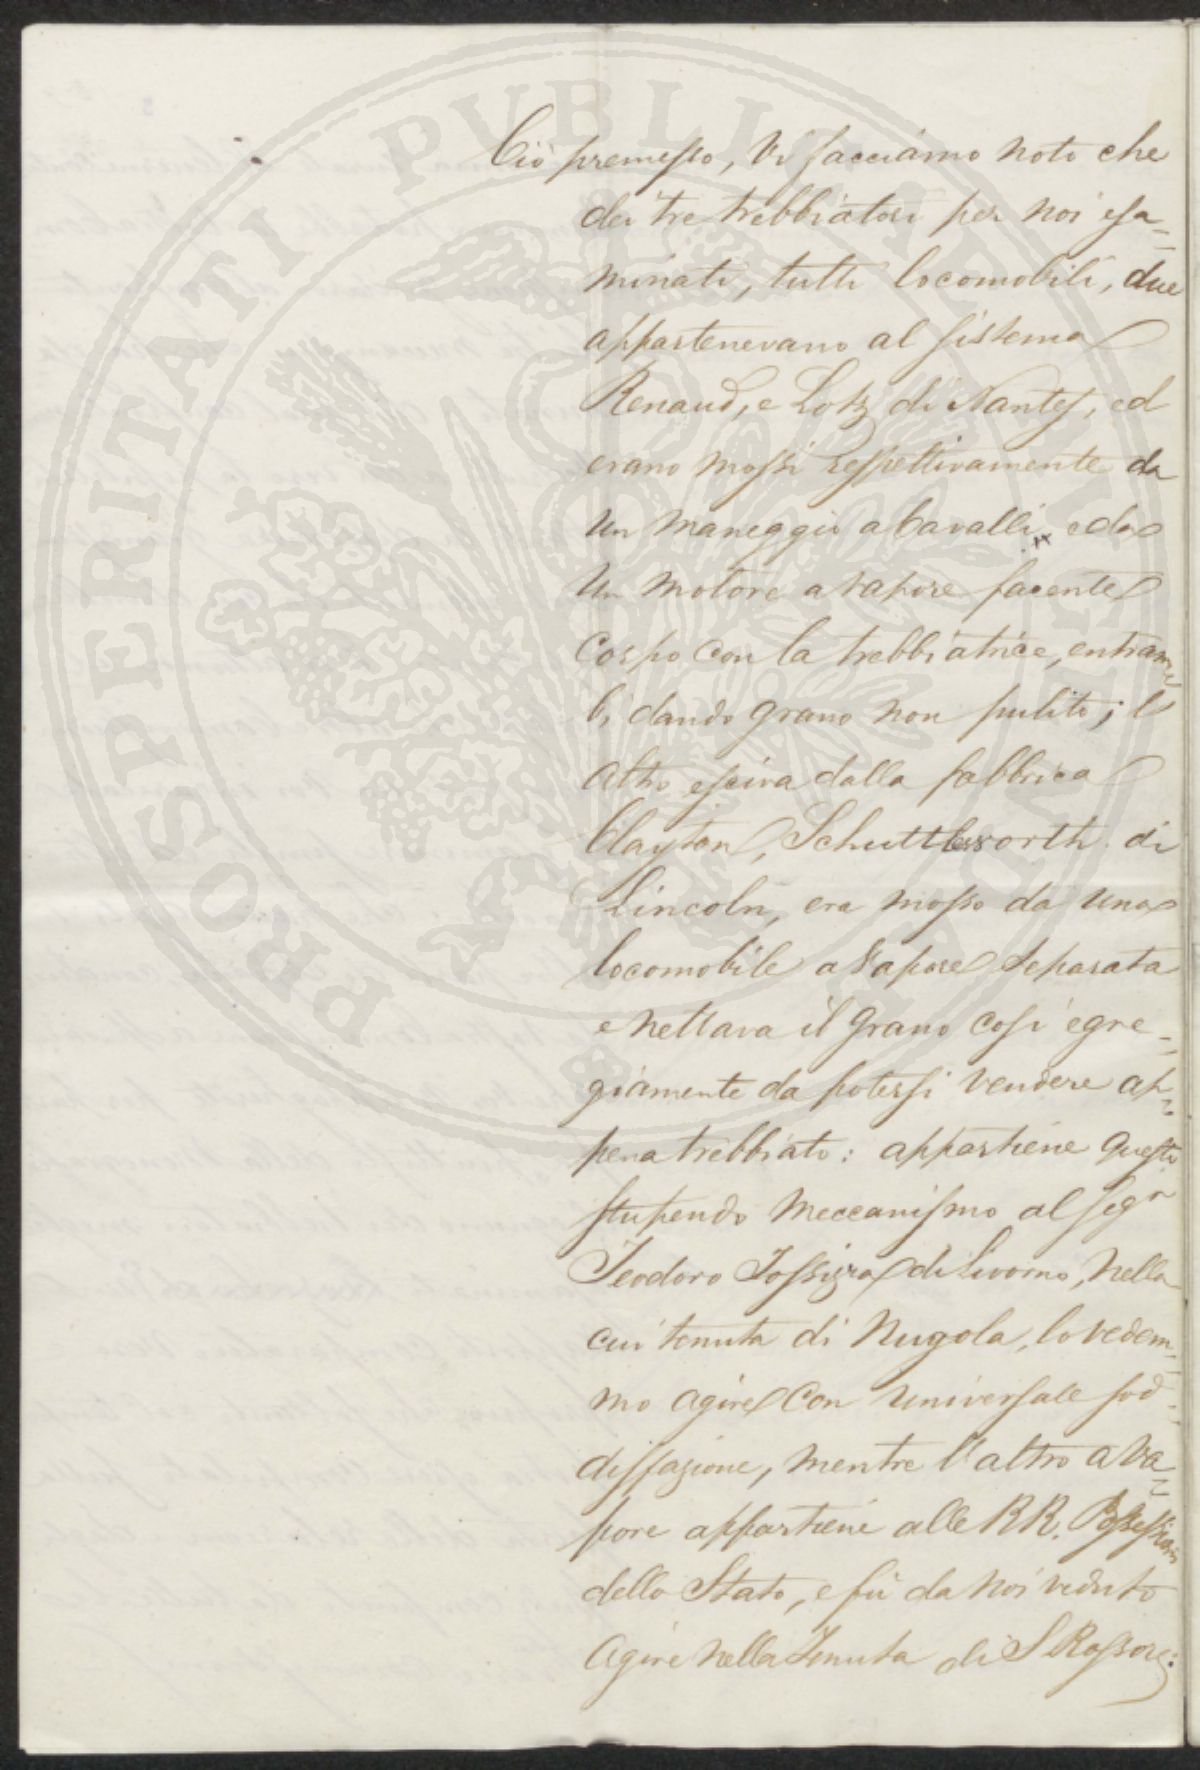 Ciò premesso, Vi facciamo noto che
dei tre trebbiatori per noi esa-
minati, tutti locomobili, due
appartenevano al sistema
Renaud, e Lotz di Nantes, ed
erano mossi respettivamente da
un maneggio a Cavalli, e da
un motore a vapore facente
Corpo con la trebbiatrice, entram
bi dando grano non pulito; l'
altro esciva dalla fabbrica
Clayton, Schuttleworth di
Lincoln, era mosso da una
locomobile a Vapore separata
e nettava il grano così egre-
giamente da potersi vendere ap-
pena trebbiato: appartiene questo
stupendo meccanismo al Sigr
Teodoro Tossizza di Livorno, nella
cui tenuta di Nugola, lo vedem-
mo agire con universale sod-
disfazione, mentre l'altro a va-
pore appartiene alle RR. Possessioni
dello Stato, e fù da noi veduto
agire nella tenuta di S. Rossore:
PROSPERITATI PUBLICAE